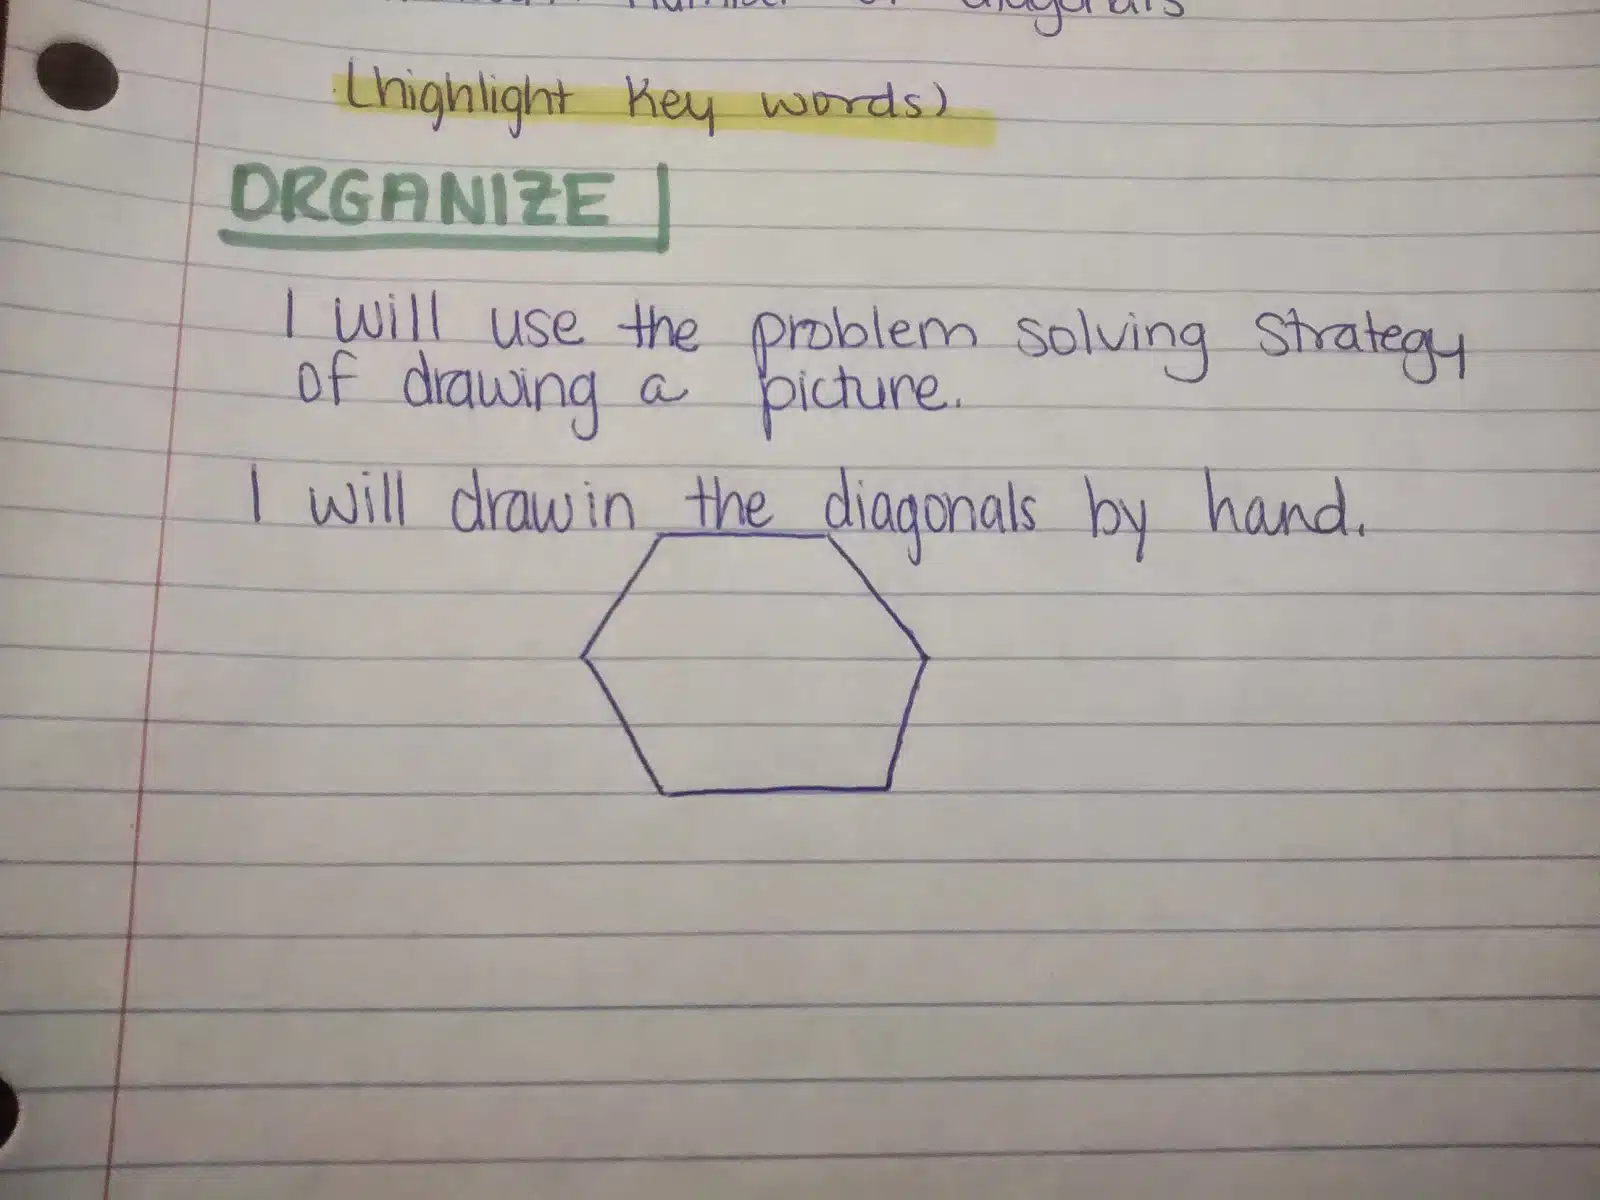 number of diagonals
(highlight key words)
ORGANIZE
I will use the problem solving strategy
of drawing a picture.
I will draw in the diagonals by hand.